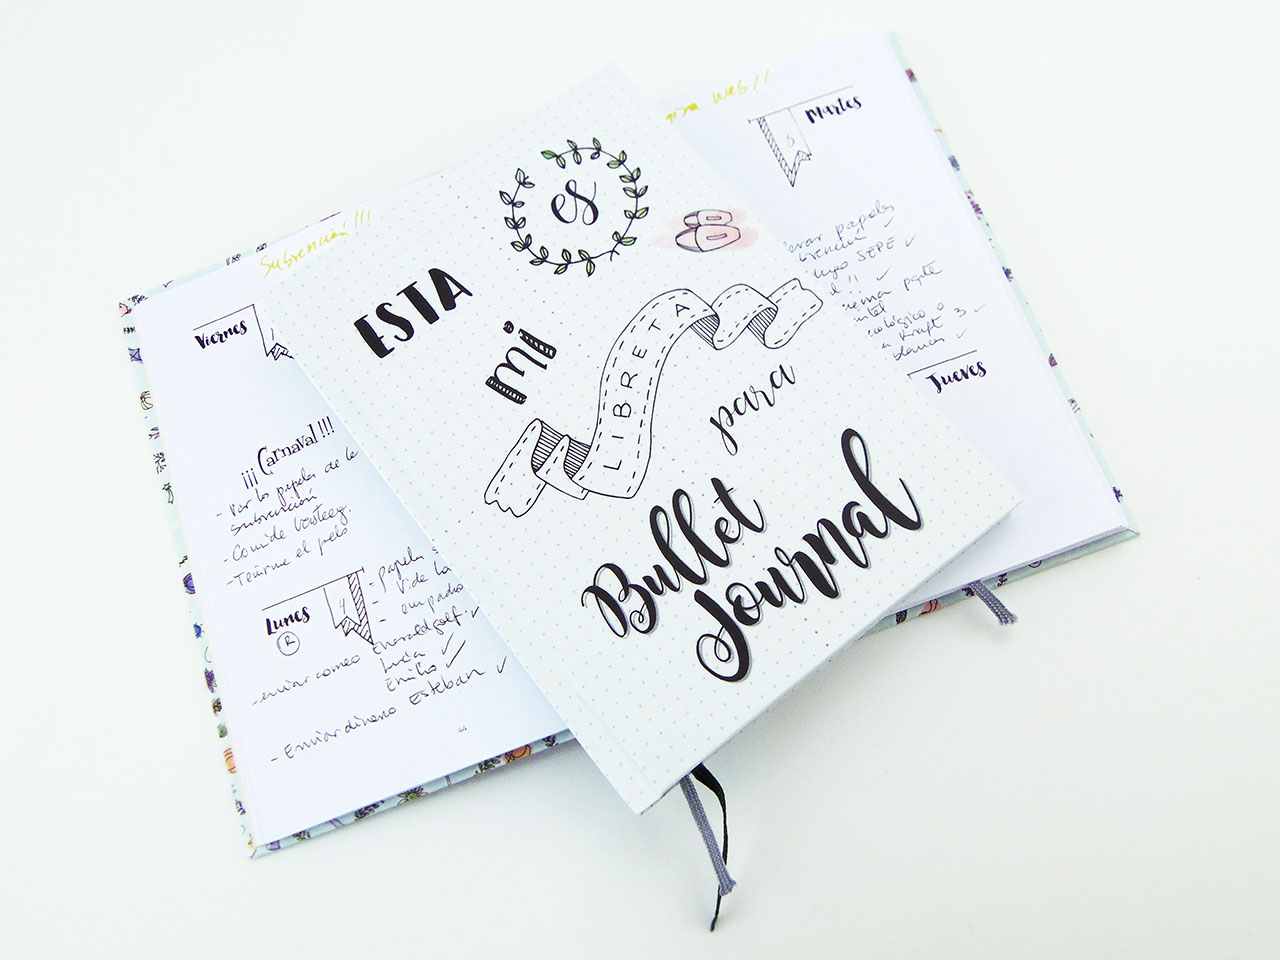 ESTA
es
mi
LIBRETA
para
Bullet
Journal
Subvención!!!
Viernes
¡¡¡ Carnaval !!!
- Ver lo papeles de la
subvención
- Comida
- Teñirme el pelo
Lunes
4
R
- enviar correo Emeraldgolf ✓
Lucía ✓
Emilio ✓
- Enviar dinero Esteban ✓
- papeles
44
web!!
Martes
5
papeles
SEPE ✓
Kraft 3 ✓
Jueves